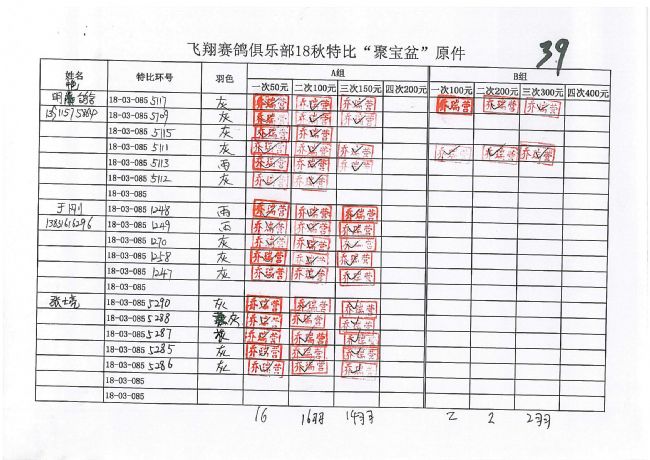 飞翔赛鸽俱乐部18秋特比“聚宝盆”原件
39
姓名 特比环号 羽色 A组 B组
一次50元 二次100元 三次150元 四次200元 一次100元 二次200元 三次300元 四次400元
18-03-085 5117 灰 乔瑞营 乔瑞营 乔瑞营 乔瑞营 乔瑞营 乔瑞营
18-03-085 5709 灰 乔瑞营 乔瑞营 乔瑞营
18-03-085 5115 灰 乔瑞营 乔瑞营
18-03-085 5111 灰 乔瑞营 乔瑞营 乔瑞营 乔瑞营 乔瑞营 乔瑞营
18-03-085 5113 雨 乔瑞营 乔瑞营 乔瑞营
18-03-085 5112 灰 乔瑞营 乔瑞营
18-03-085
于刚 18-03-085 1248 雨 乔瑞营 乔瑞营 乔瑞营
18-03-085 1249 雨 乔瑞营 乔瑞营 乔瑞营
18-03-085 1270 灰 乔瑞营 乔瑞营 乔瑞营
18-03-085 1258 灰 乔瑞营 乔瑞营 乔瑞营
18-03-085 1247 灰 乔瑞营 乔瑞营 乔瑞营
18-03-085
张士亮 18-03-085 5290 灰 乔瑞营 乔瑞营 乔瑞营
18-03-085 5288 灰 乔瑞营 乔瑞营 乔瑞营
18-03-085 5287 乔瑞营 乔瑞营 乔瑞营
18-03-085 5285 灰 乔瑞营 乔瑞营 乔瑞营
18-03-085 5286 灰 乔瑞营 乔瑞营 乔瑞营
18-03-085
18-03-085
16 16羽 14羽 2 2 2羽